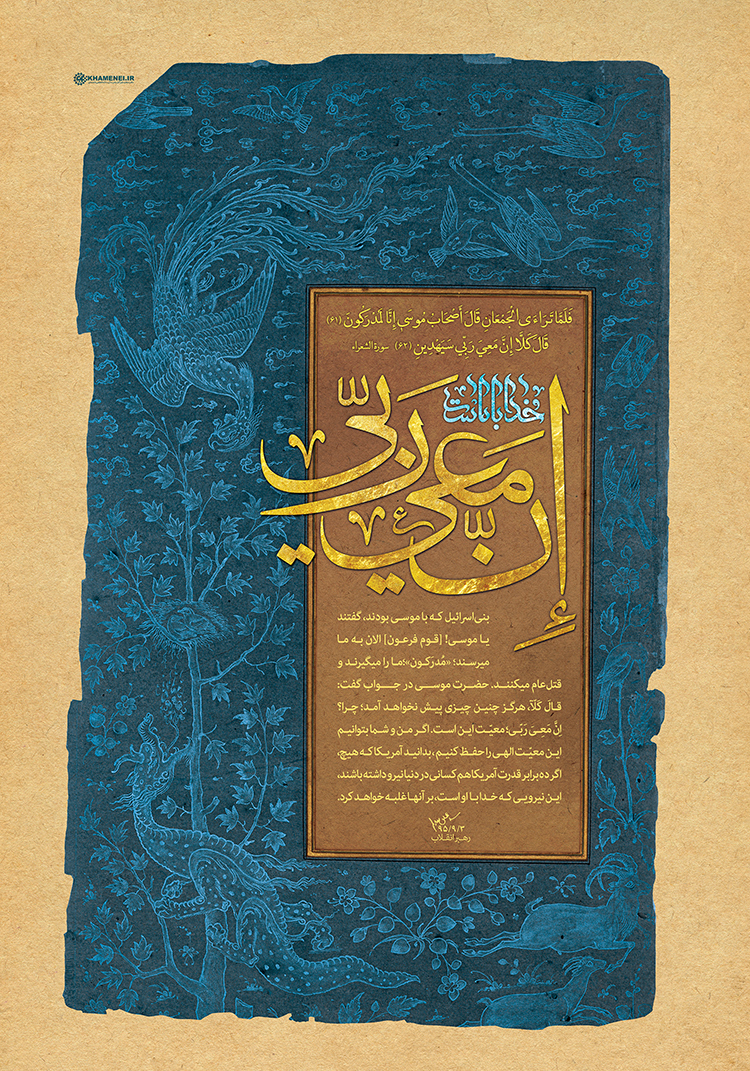 KHAMENEI.IR
فَلَمَّا تَرَاءَى الْجَمْعَانِ قَالَ أَصْحَابُ مُوسَىٰ إِنَّا لَمُدْرَكُونَ (۶۱)
قَالَ كَلَّا إِنَّ مَعِيَ رَبِّي سَيَهْدِينِ (۶۲) سورة الشعراء
خدا با ماست
إنّ معي ربّي
بنی‌اسرائیل که با موسی بودند، گفتند
یا موسی! [قوم فرعون] الان به ما
میرسند؛ «مُدرَکون»؛ ما را میگیرند و
قتل‌عام میکنند. حضرت موسی در جواب گفت:
قالَ کَلّا، هرگز چنین چیزی پیش نخواهد آمد؛ چرا؟
اِنَّ مَعِیَ رَبّی؛ معیّت این است. اگر من و شما بتوانیم
این معیّت الهی را حفظ کنیم، بدانید آمریکا که هیچ،
اگر ده برابر قدرت آمریکا هم کسانی در دنیا نیرو داشته باشند،
این نیرویی که خدا با او است، بر آنها غلبه خواهد کرد.
۹۵/۹/۳
رهبر انقلاب